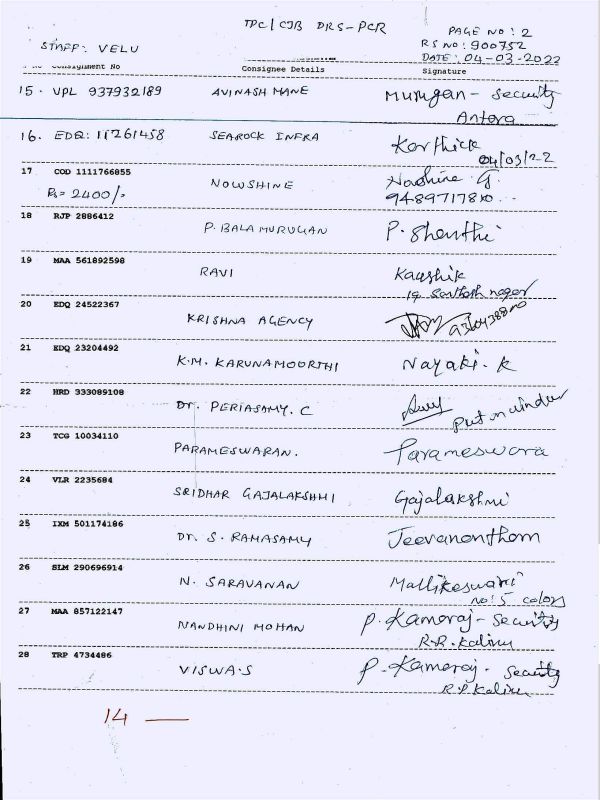 TPC/CJB DRS-PCR
PAGE NO: 2
STAFF: VELU
RS NO: 900752
DATE: 04-03-2022
Consignment No Consignee Details Signature
15. VPL 937932189 AVINASH MANE Murugan - Security
Antara
16. EDQ: 11261458 SEAROCK INFRA Karthick
04/03/22
17 COD 1111766855 NOWSHINE
Rs= 2400/-
18 RJP 2886412 P. BALA MURUGAN P. Shanthi
19 MAA 561892598 RAVI Kaushik
19 Santhosh nagar
20 EDQ 24522367 KRISHNA AGENCY
21 EDQ 23204492 K.M. KARUNAMOORTHI Nayaki. K
22 HRD 333089108 Dr. PERIASAMY. C
Put n window
23 TCG 10034110 PARAMESWARAN. Parameswara
24 VLR 2235684 SRIDHAR GAJALAKSHMI Gajalakshmi
25 IXM 501174186 Dr. S. RAMASAMY Jeevanantham
26 SLM 290696914 N. SARAVANAN Mallikeswari
no: 5 colony
27 MAA 857122147 NANDHINI MOHAN P. Kamaraj - Security
R.R.
28 TRP 4734486 VISWA.S P. Kamaraj - Security
14 —